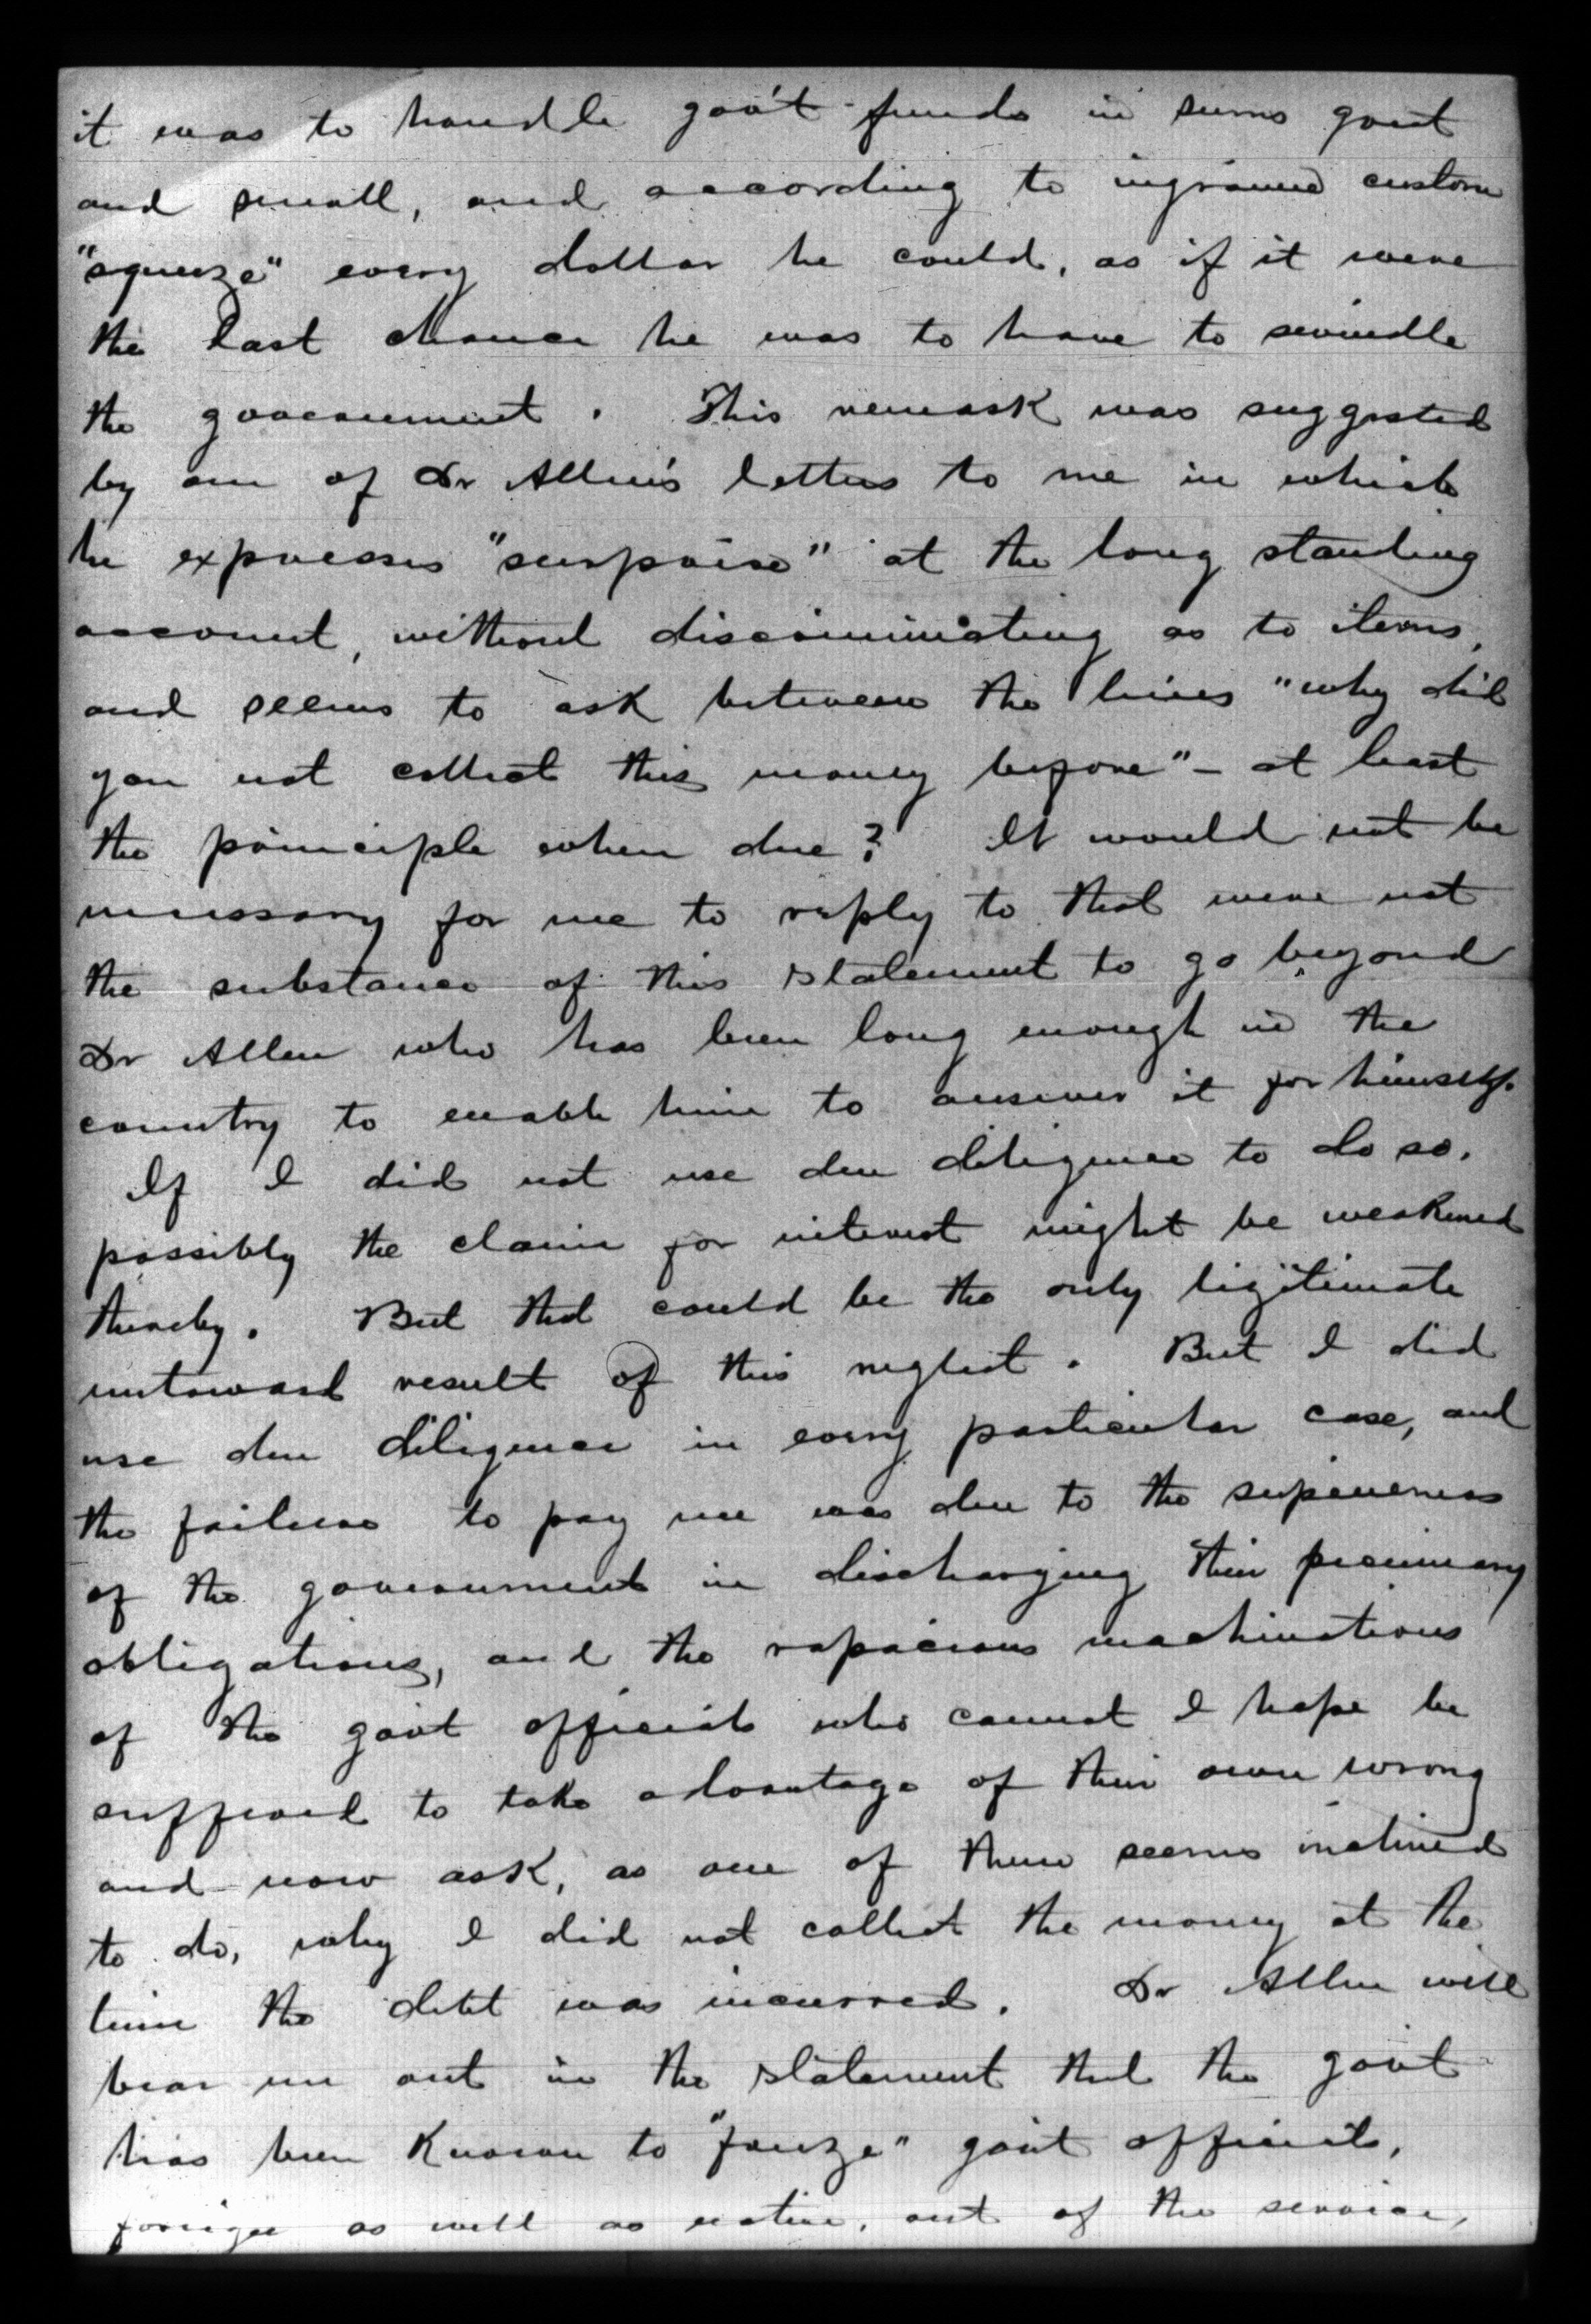 it was to handle gov't funds in sums great
and small, and according to ingrained custom
"squeeze" every dollar he could, as if it were
the last chance he was to have to swindle
the government. This remark was suggested
by one of Dr Allen's letters to me in which
he expresses "surprise" at the long standing
account, without discriminating as to items,
and seems to ask between the lines "why did
you not collect this money before" – at least
the principle when due? It would not be
necessary for me to reply to that were not
the substance of this statement to go beyond
Dr Allen who has been long enough in the
country to enable him to answer it for himself.
If I did not use due diligence to do so,
possibly the claim for interest might be weakened
thereby. But that could be the only legitimate
untoward result of this neglect. But I did
use due diligence in every particular case, and
the failure to pay me was due to the supineness
of the government in discharging their pecuniary
obligations, and the rapacious machinations
of the gov't officials who cannot I hope be
suffered to take advantage of their own wrong
and now ask, as one of them seems inclined
to do, why I did not collect the money at the
time the debt was incurred. Dr Allen will
bear me out in the statement that the gov't
has been known to "freeze" gov't officials,
foreign as well as native, out of the service,